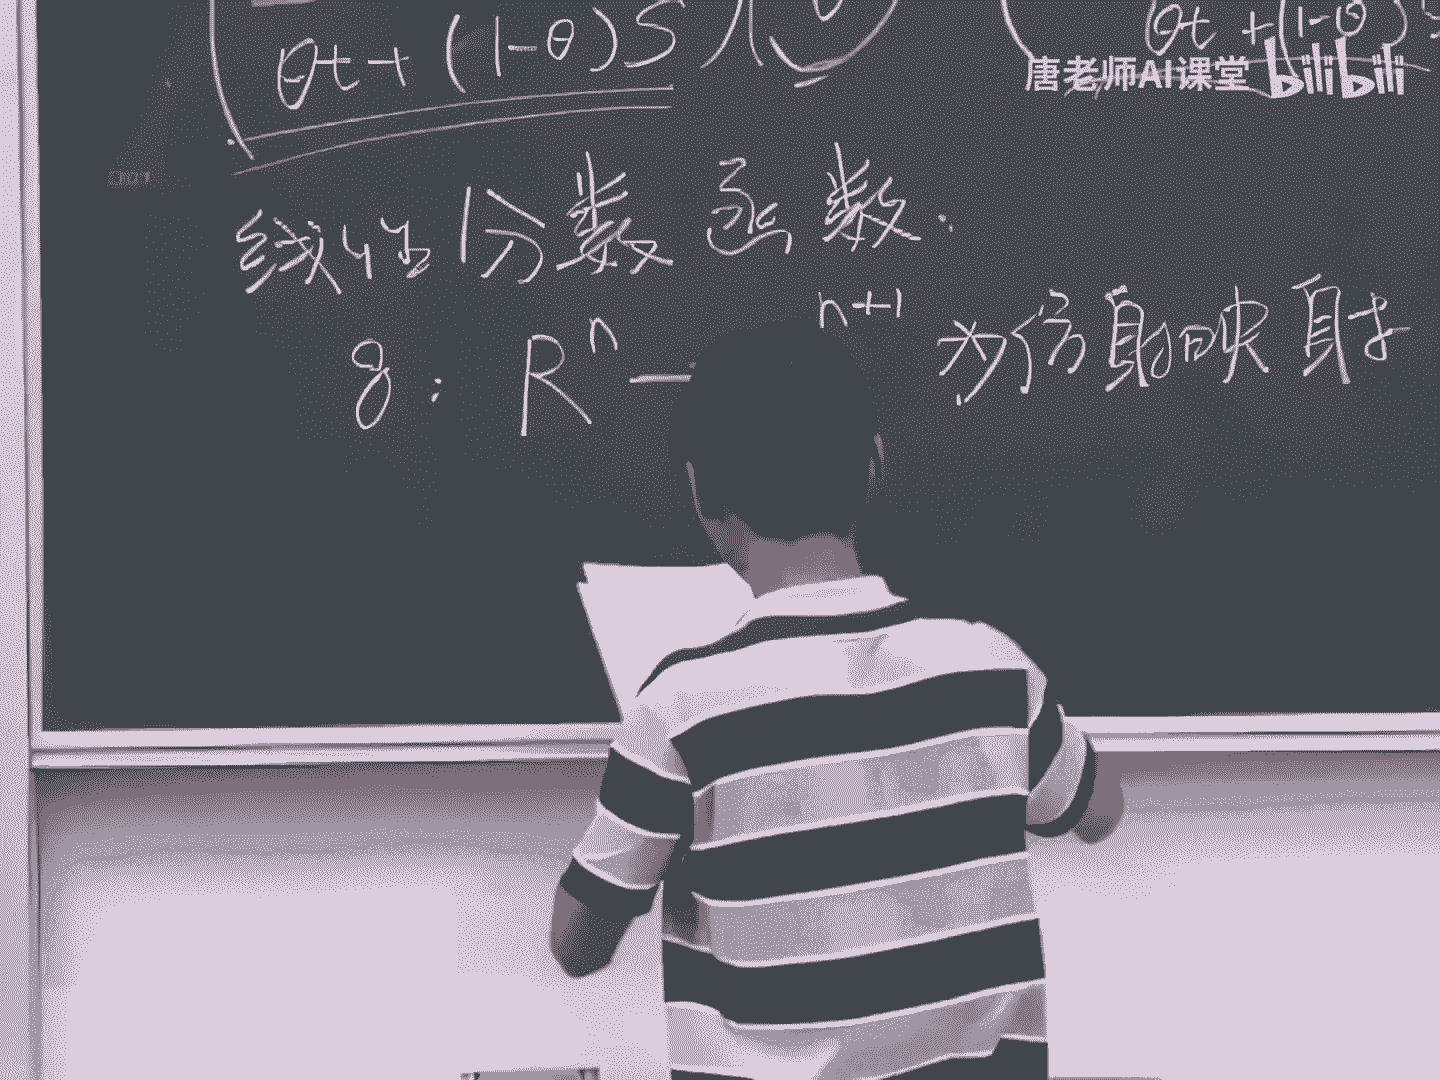 θt + (1-θ)S
θt + (1-θ)S
唐老师AI课堂 bilibili
线性分数函数.
g: R^n — ^n+1 为仿射映射